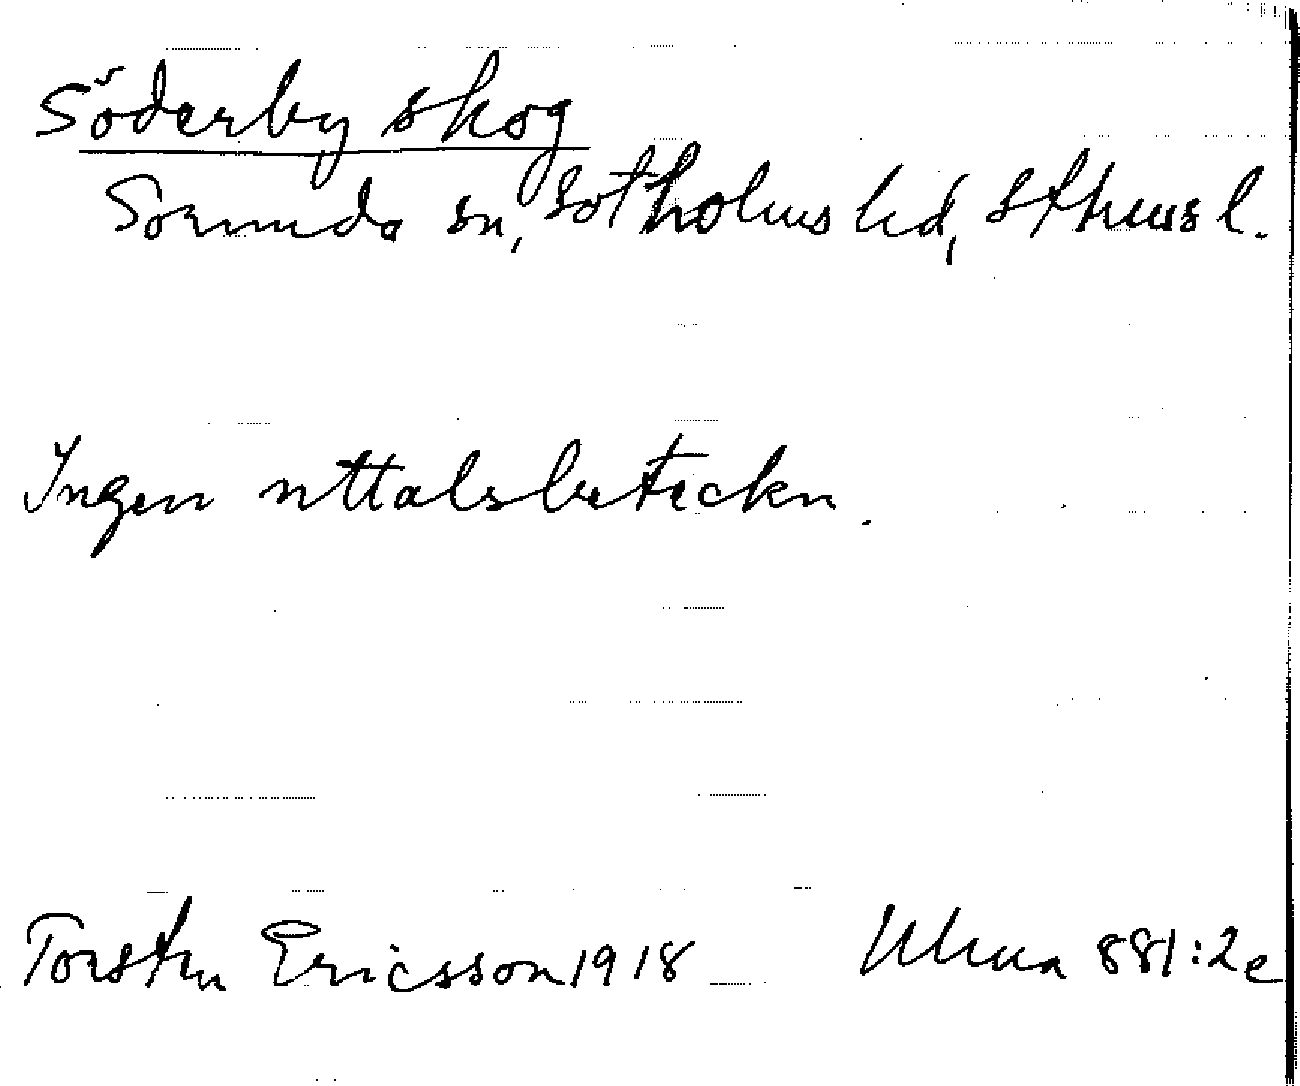 Söderby skog
Sorunda sn, Sotholms hd, Sthms l.
Ingen uttalsbeteckn.
Torsten Ericsson 1918 Ulma 881:2e